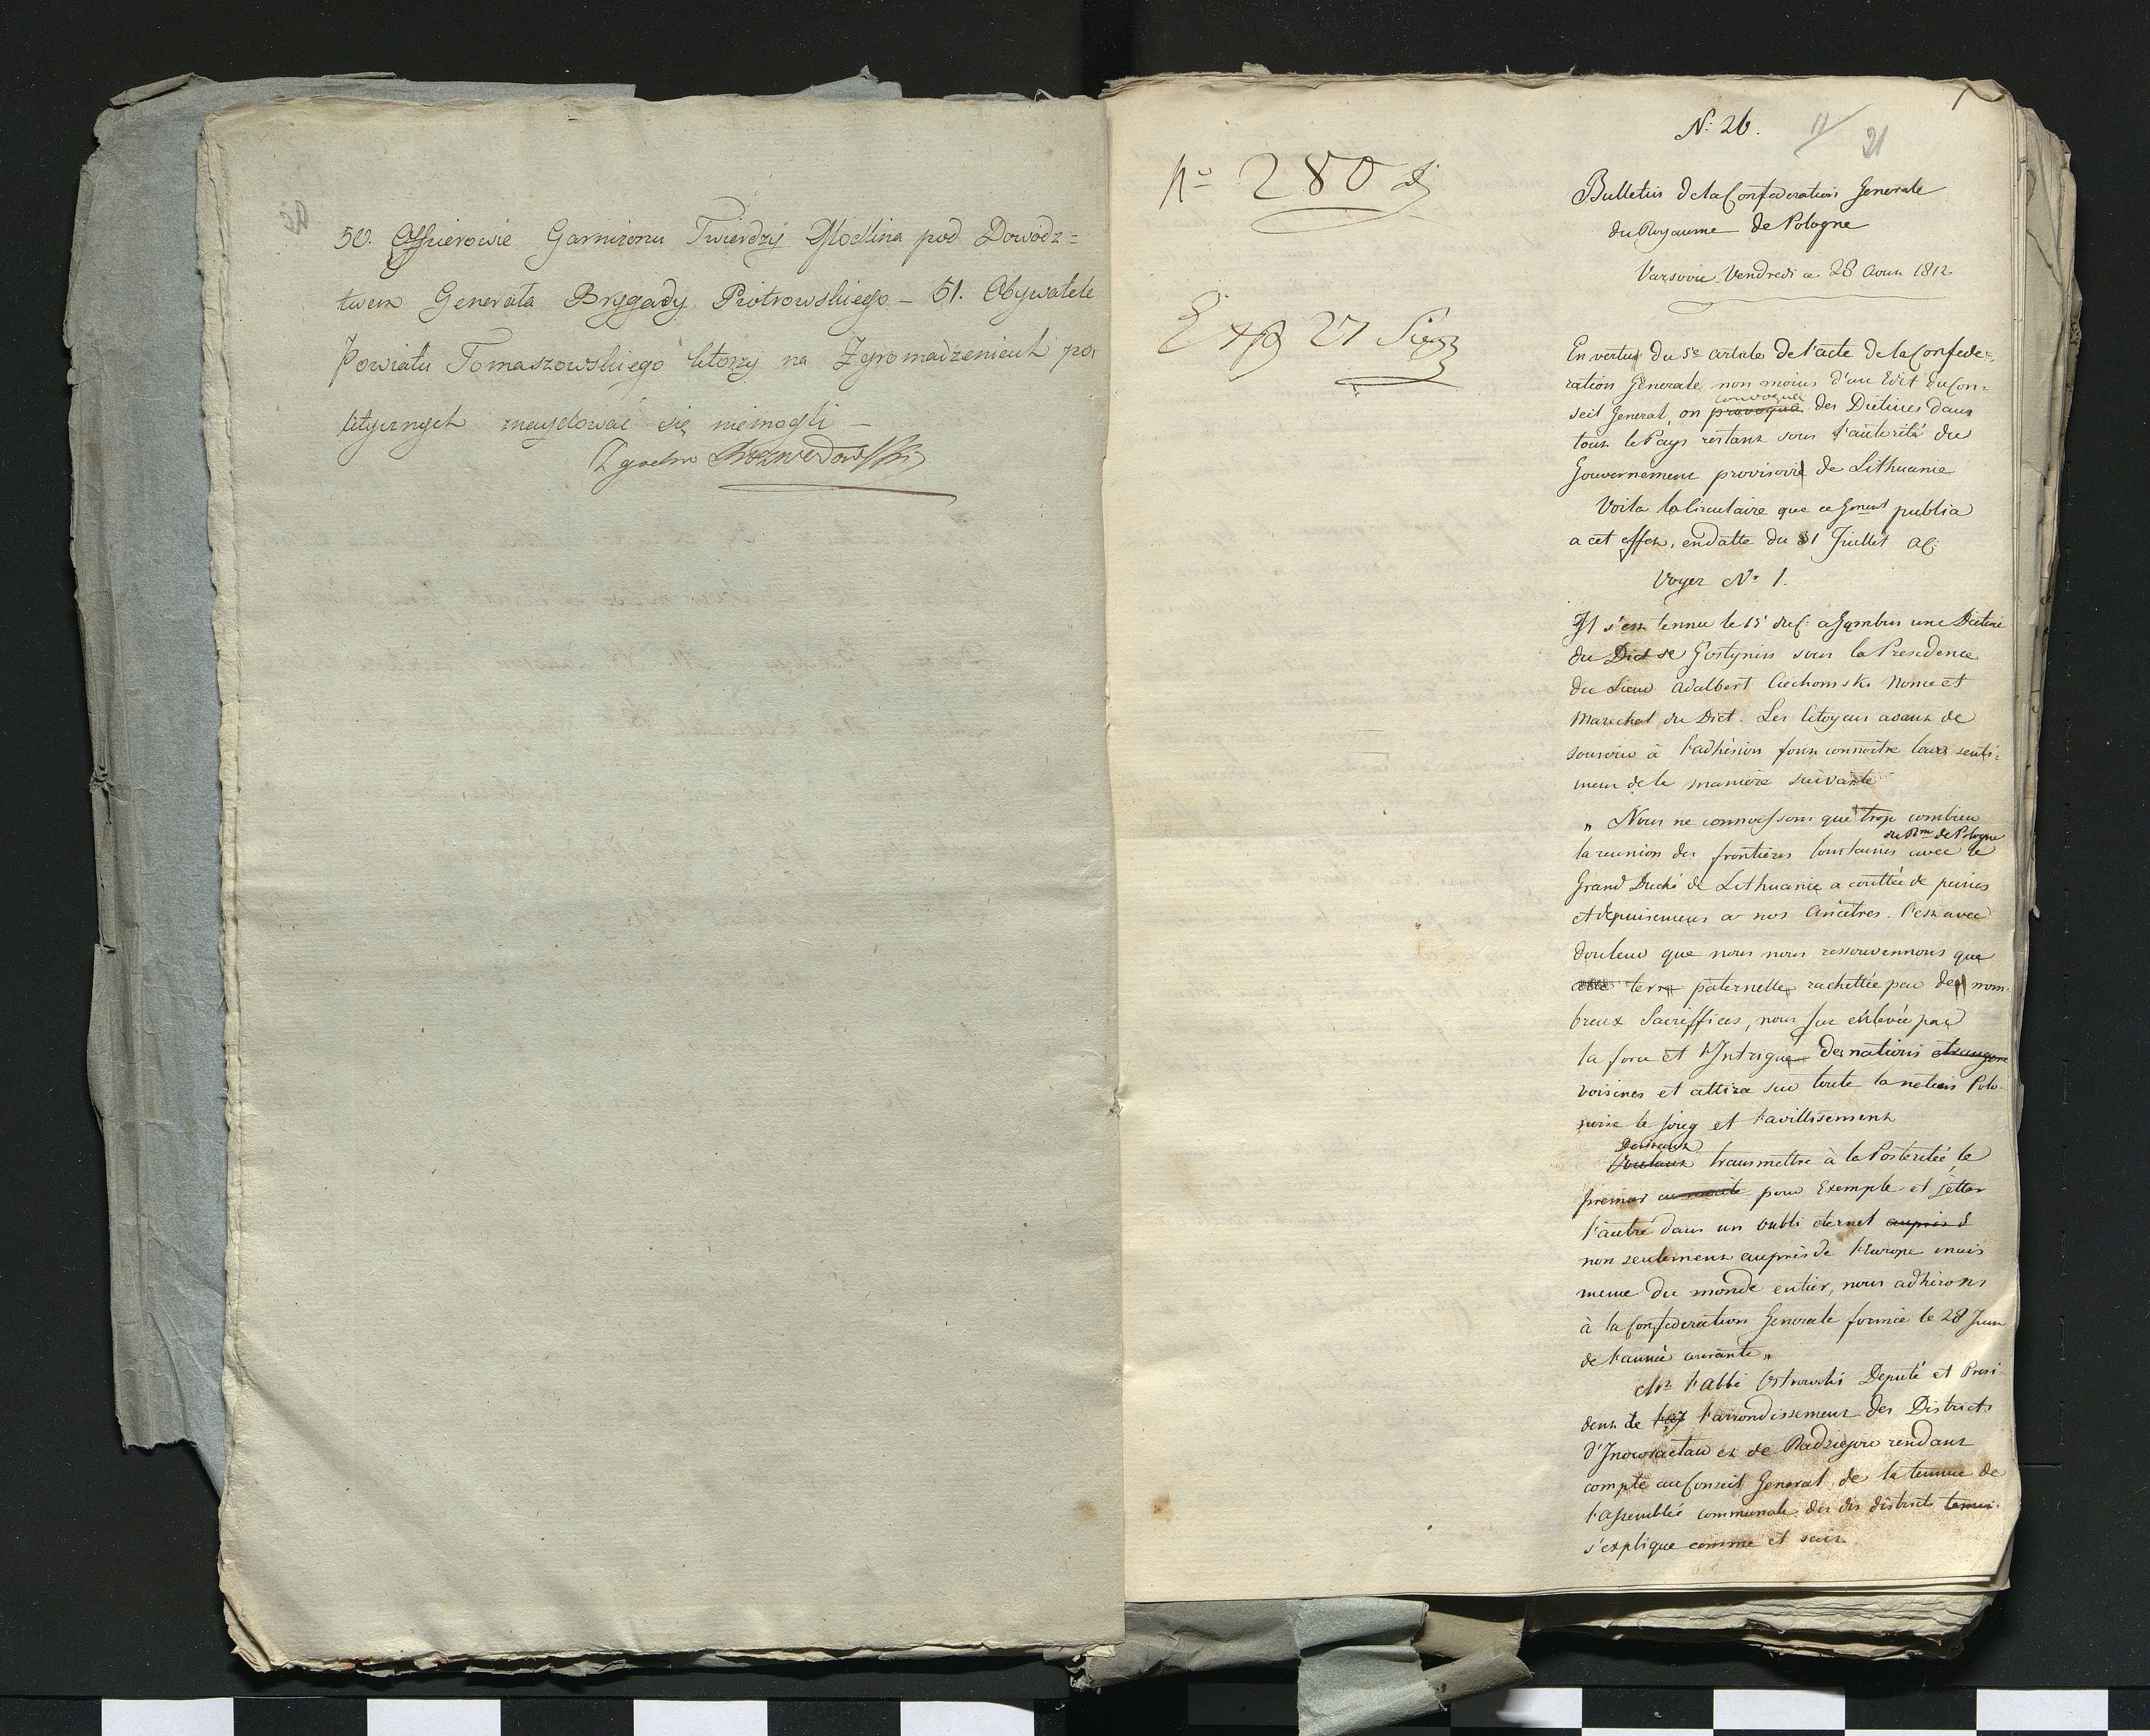 50. Officierowie Garnizonu Twierdzy Modlina pod Dowodz=
twem Generała Brygady Piotrowskiego – 51. Obywatele
Powiatu Tomaszowskiego którzy na Zgromadzeniach po,
litycznych znaydować się niemogli –
Zgodno
N: 26.
11
21
No 280
Exp 27 Sierp
Bulletin de la Confederation Generale
du Royaume de Pologne
Varsovie Vendredi a 28 Aout 1812
En vertu du 5e article de l'acte de la Confede=
ration Generale non moins d'un Edit du Con=
convoqua
seil General, on provoqua des Dietines dans
tout le Pays restant sous l'autorité du
Gouvernement provisoire de Lithuanie
Voila la Circulaire que ce Gment publia
a cet effet, en datte du 31 Juillet
Voyez No 1.
Il s'est tennu le 15 du c. a Gambin une Dietine
du Dict de Gostynin sous la Presidence
du Sieur Adalbert Ciechomski Nonce et
Marechal du Dict. Les Citoyens avant de
souscrire à l'adhésion font connoitre leurs senti=
mens de la maniere suivante
„ Nous ne connoissons que trop combien
du Rme de Pologne
la reunion des frontieres lointaines avec le
Grand Duché de Lithuanie a couttée de peines
et depuisemens a nos Ancetres. C'est avec
douleur que nous nous ressouvennons que
cette terre paternelle rachettée par de nom=
breux Sacriffices, nous fut enlevée par
la force et l'Intrigue des nations etrangere
voisines et attira sur toute la nation Polo=
noise le joug et l'avilissement
Desirant
Voulant transmettre à la Posteritée le
premier pour Exemple et jetter
l'autre dans un oubli eternel auprès d
non seulement auprès de l'Europe mais
meme du monde entier, nous adhérons
à la Confederation Generale formée le 28 Juin
de l'année courante „
Mr l'Abbé Ostrowski Deputé et Presi=
dent de l'arrondissement des Districts
d'Inowraclaw et de Radziejow rendant
compte au Conseil General de la tennue de
l'assemblée communale des dis districts tenni.
s'explique comme et suit